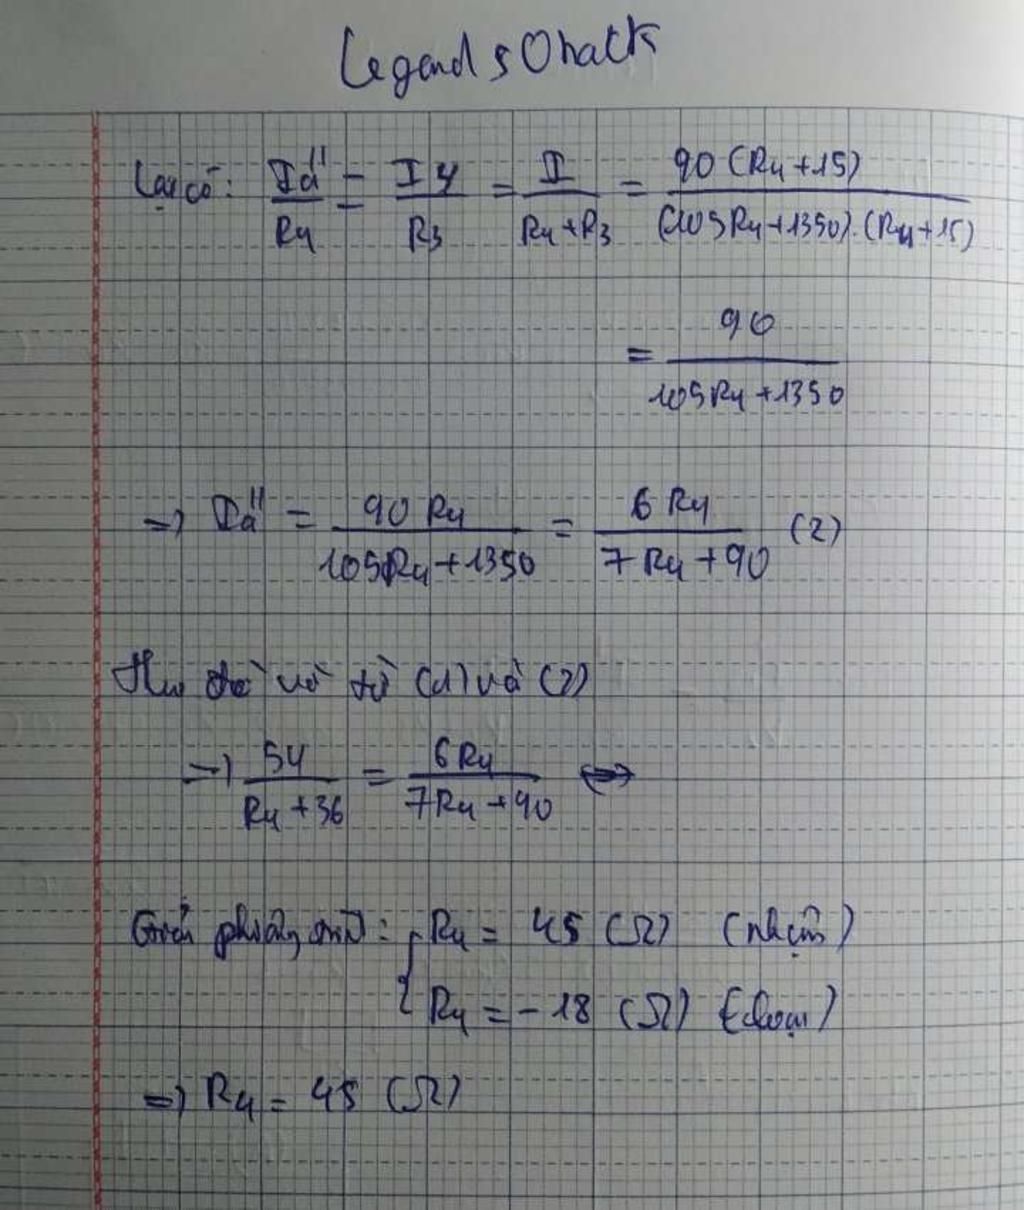 Legends Onatk
Lại có: Iá''/R4 = I4/R3 = I/(R4+R3) = 90(R4+15)/((105R4+1350).(R4+15))
= 90/(105R4+1350)
=> Iá'' = 90R4/(105R4+1350) = 6R4/(7R4+90) (2)
từ (1) và (2)
=> 54/(R4+36) = 6R4/(7R4+90) <=>
Giải phương trình: { R4 = 45 (Ω) (nhận)
R4 = -18 (Ω) (loại)
=> R4 = 45 (Ω)